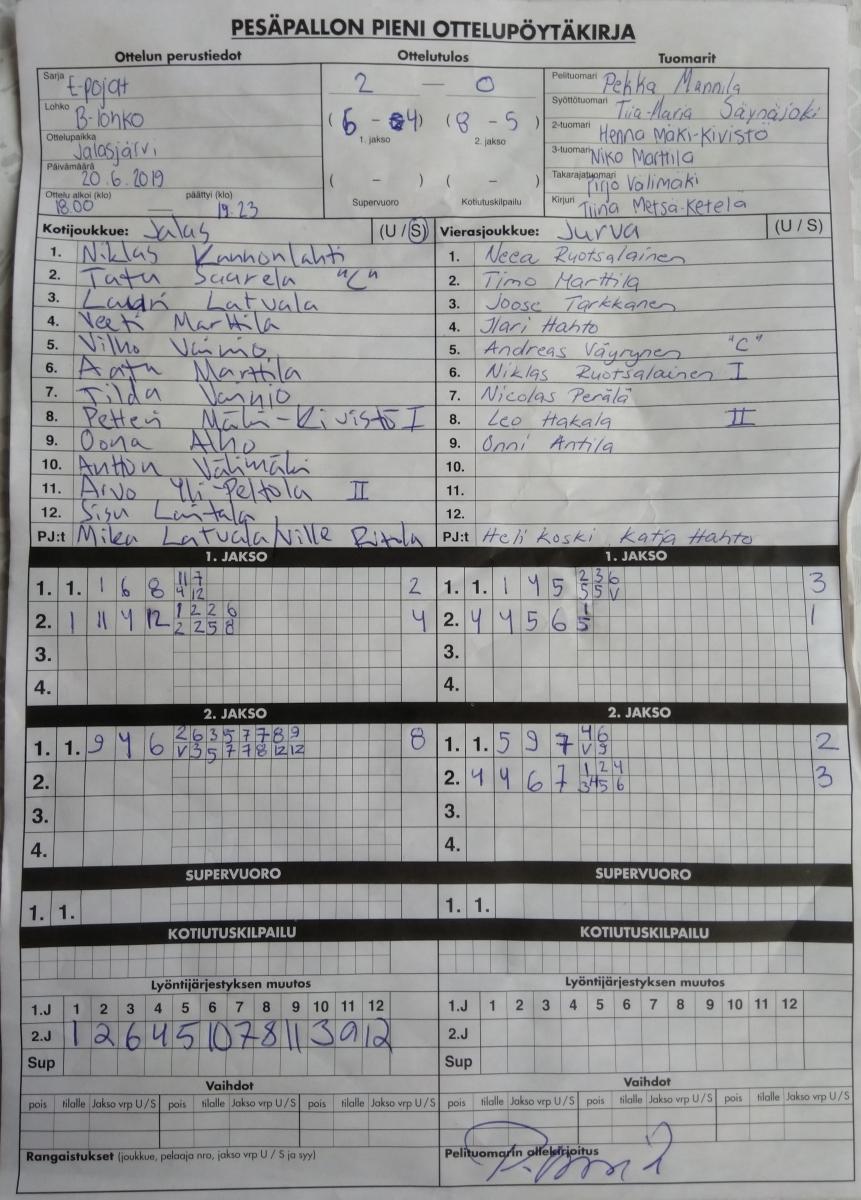 PESÄPALLON PIENI OTTELUPÖYTÄKIRJA
Ottelun perustiedot Ottelutulos Tuomarit
Sarja E-pojat
Lohko B-lohko
Ottelupaikka Jalasjärvi
Päivämäärä 20.6.2019
Ottelu alkoi (klo) 18.00 — päättyi (klo) 19.23
2 — 0
(6 - 4) (8 - 5)
1. jakso 2. jakso
( - ) ( - )
Supervuoro Kotiutuskilpailu
Pelituomari Pekka Mannila
Syöttötuomari Tiia-Maria Säynäjoki
2-tuomari Henna Mäki-Kivistö
3-tuomari Niko Marttila
Takarajatuomari Tirjo Välimäki
Kirjuri Tiina Metsä-Ketelä
Kotijoukkue: Jalas (U / S)
1. Niklas Kannonlahti
2. Tatu Saarela "C"
3. Lauri Latvala
4. Veeti Marttila
5. Vilho Vainio
6. Aatu Marttila
7. Tilda Vainio
8. Petteri Mäki-Kivistö I
9. Oona Alho
10. Antton Välimäki
11. Arvo Yli-Peltola II
12. Sisu Lantala
PJ:t Mika Latvala/Ville Ritola
Vierasjoukkue: Jurva (U / S)
1. Neea Ruotsalainen
2. Timo Marttila
3. Joose Tarkkanen
4. Ilari Hahto
5. Andreas Väyrynen "C"
6. Niklas Ruotsalainen I
7. Nicolas Perälä
8. Leo Hakala II
9. Onni Antila
10.
11.
12.
PJ:t Heli Koski Katja Hahto
1. JAKSO 1. JAKSO
1. 1. 1 6 8 11 7 2
4 12
2. 1 11 4 12 1 2 2 6 4
2 2 5 8
3.
4.
1. 1. 1 4 5 2 3 6 3
5 5 V
2. 4 4 5 6 1 1
5
3.
4.
2. JAKSO 2. JAKSO
1. 1. 9 4 6 2 6 3 5 7 7 8 9 8
V 3 5 7 7 8 12 12
2.
3.
4.
1. 1. 5 9 7 4 6 2
V 9
2. 4 4 6 7 1 2 4 3
3 4 5 6
3.
4.
SUPERVUORO SUPERVUORO
1. 1. 1. 1.
KOTIUTUSKILPAILU KOTIUTUSKILPAILU
Lyöntijärjestyksen muutos Lyöntijärjestyksen muutos
1.J 1 2 3 4 5 6 7 8 9 10 11 12 1.J 1 2 3 4 5 6 7 8 9 10 11 12
2.J 1 2 6 4 5 10 7 8 11 3 9 12 2.J
Sup Sup
Vaihdot Vaihdot
pois tilalle Jakso vrp U / S pois tilalle Jakso vrp U / S pois tilalle Jakso vrp U / S pois tilalle Jakso vrp U / S pois tilalle Jakso vrp U / S pois tilalle Jakso vrp U / S
Rangaistukset (joukkue, pelaaja nro, jakso vrp U / S ja syy) Pelituomarin allekirjoitus